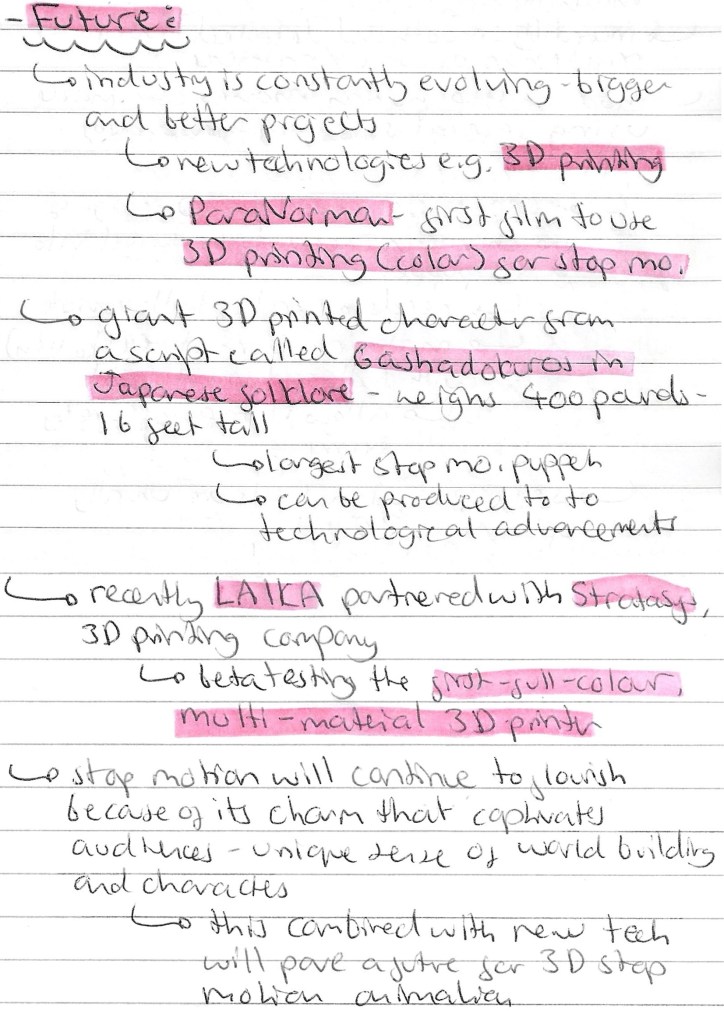 - Future:
↳ industry is constantly evolving - bigger
and better projects
↳ new technologies e.g. 3D printing
↳ ParaNorman - first film to use
3D printing (color) for stop mo.
↳ giant 3D printed character from
a script called Gashadokuros in
Japanese folklore - weighs 400 pounds -
16 feet tall
↳ largest stop mo. puppet
↳ can be produced to to
technological advancements
↳ recently LAIKA partnered with Stratasys,
3D printing company
↳ beta testing the first-full-colour,
multi-material 3D printer
↳ stop motion will continue to flourish
because of its charm that captivates
audiences - unique sense of world building
and characters
↳ this combined with new tech
will pave a future for 3D stop
motion animation